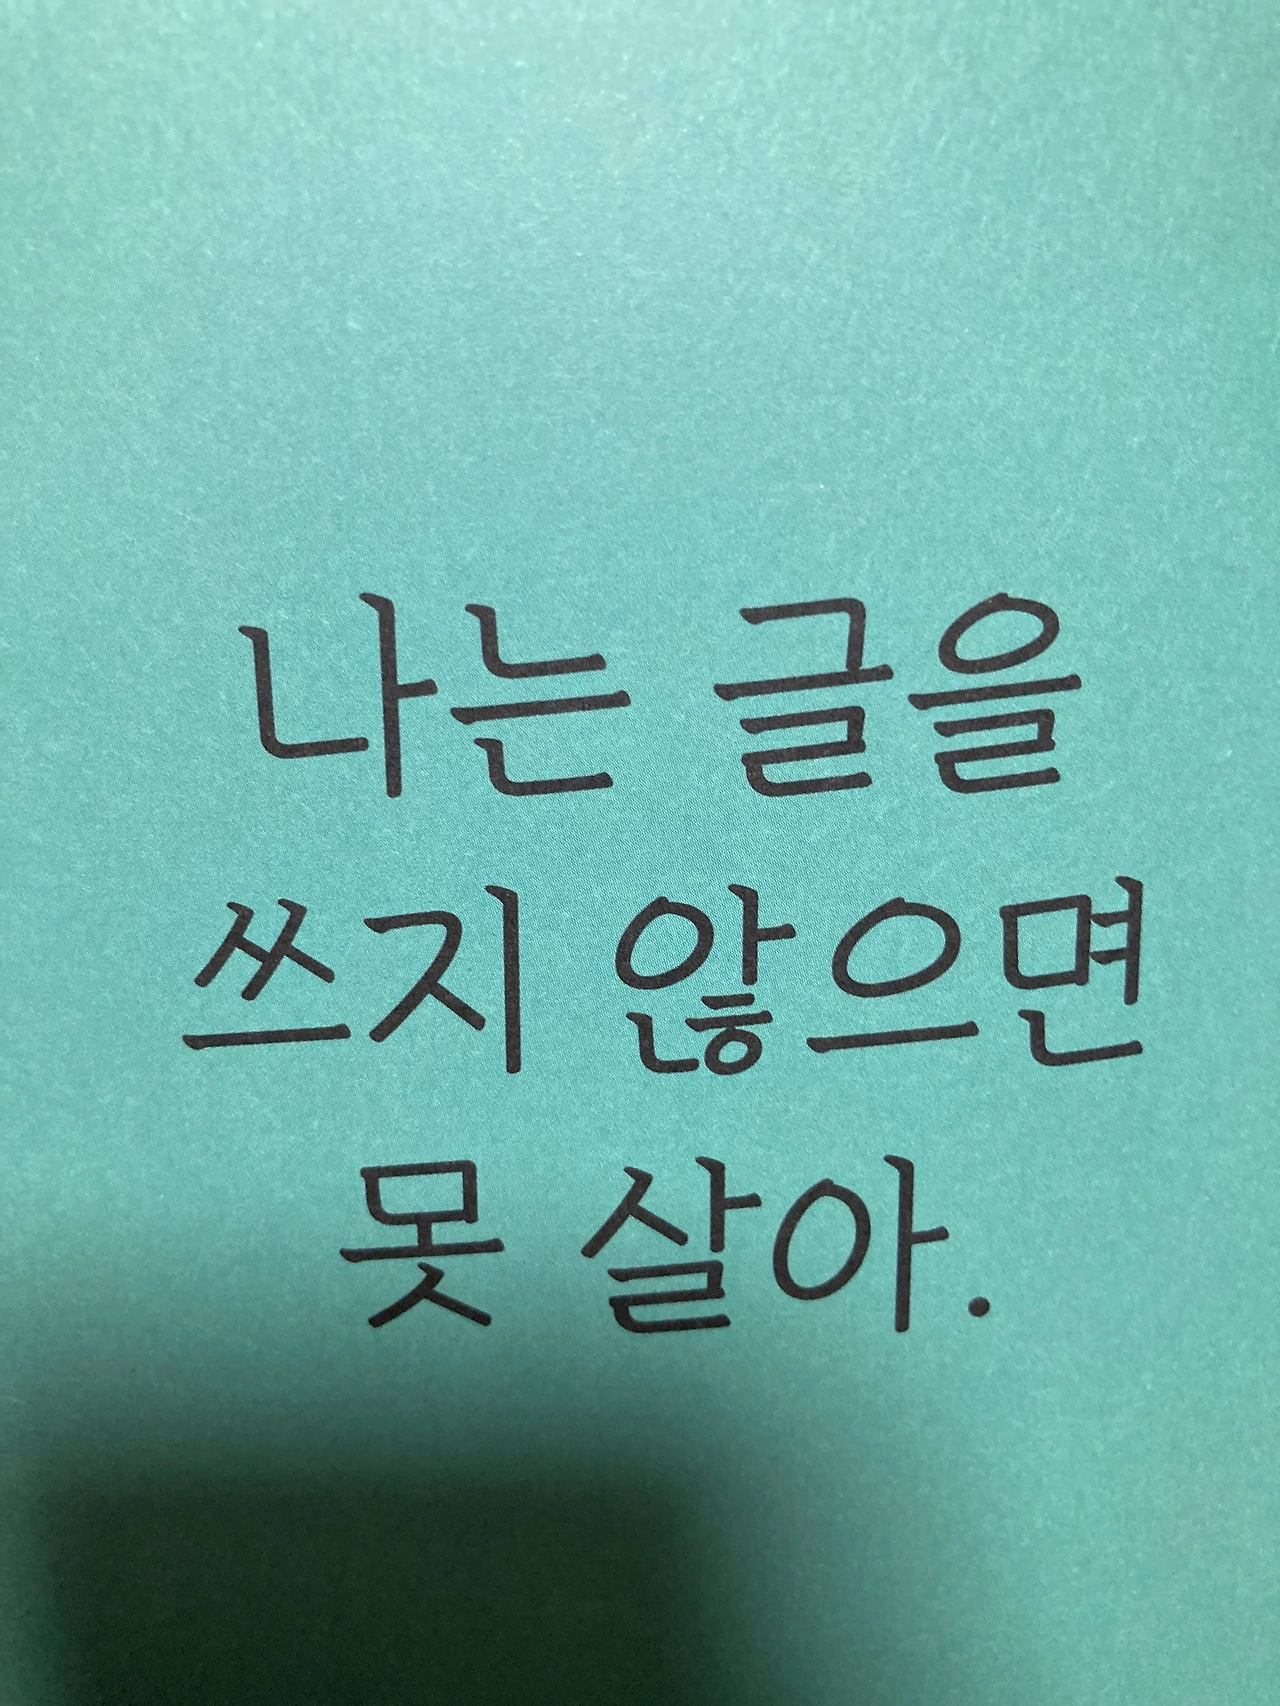 나는 글을
쓰지 않으면
못 살아.